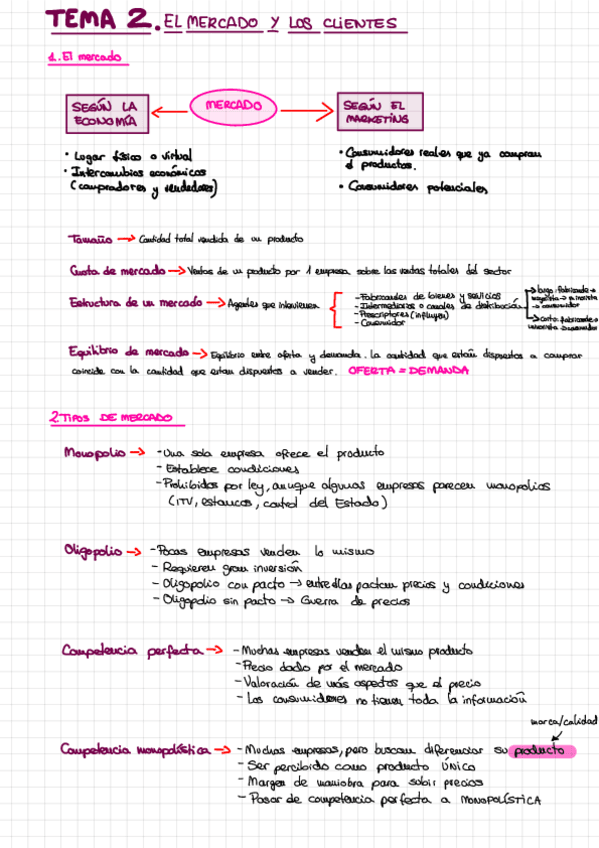 TEMA 2. EL MERCADO Y LOS CLIENTES
1. El mercado
SEGÚN LA ECONOMÍA
MERCADO
SEGÚN EL MARKETING
• Lugar físico o virtual
• Intercambios económicos
(compradores y vendedores)
• Consumidores reales que ya compran
el productos.
• Consumidores potenciales
Tamaño → Cantidad total vendida de un producto
Cuota de mercado → Ventas de un producto por 1 empresa sobre las ventas totales del sector
Estructura de un mercado → Agentes que intervienen
- Fabricantes de bienes y servicios
- Intermediarios o canales de distribución
- Prescriptores (influyen)
- Consumidor
→ largo: fabricante →
mayorista → minorista
→ consumidor
→ corto: fabricante →
minorista → consumidor
Equilibrio de mercado → Equilibrio entre oferta y demanda. La cantidad que están dispuestos a comprar
coincide con la cantidad que estan dispuestos a vender. OFERTA = DEMANDA
2. TIPOS DE MERCADO
Monopolio → - Una sola empresa ofrece el producto
- Establece condiciones
- Prohibidos por ley, aunque algunas empresas parecen monopolios
(ITV, estancos, control del Estado)
Oligopolio → - Pocas empresas venden lo mismo
- Requieren gran inversión
- Oligopolio con pacto → entre ellas pactan precios y condiciones
- Oligopolio sin pacto → Guerra de precios
Competencia perfecta → - Muchas empresas venden el mismo producto
- Precio dado por el mercado
- Valoración de más aspectos que el precio
- Los consumidores no tienen toda la información
marca/calidad
Competencia monopolística → - Muchas empresas, pero buscan diferenciar su producto
- Ser percibido como producto ÚNICO
- Margen de maniobra para subir precios
- Pasar de competencia perfecta a MONOPOLÍSTICA